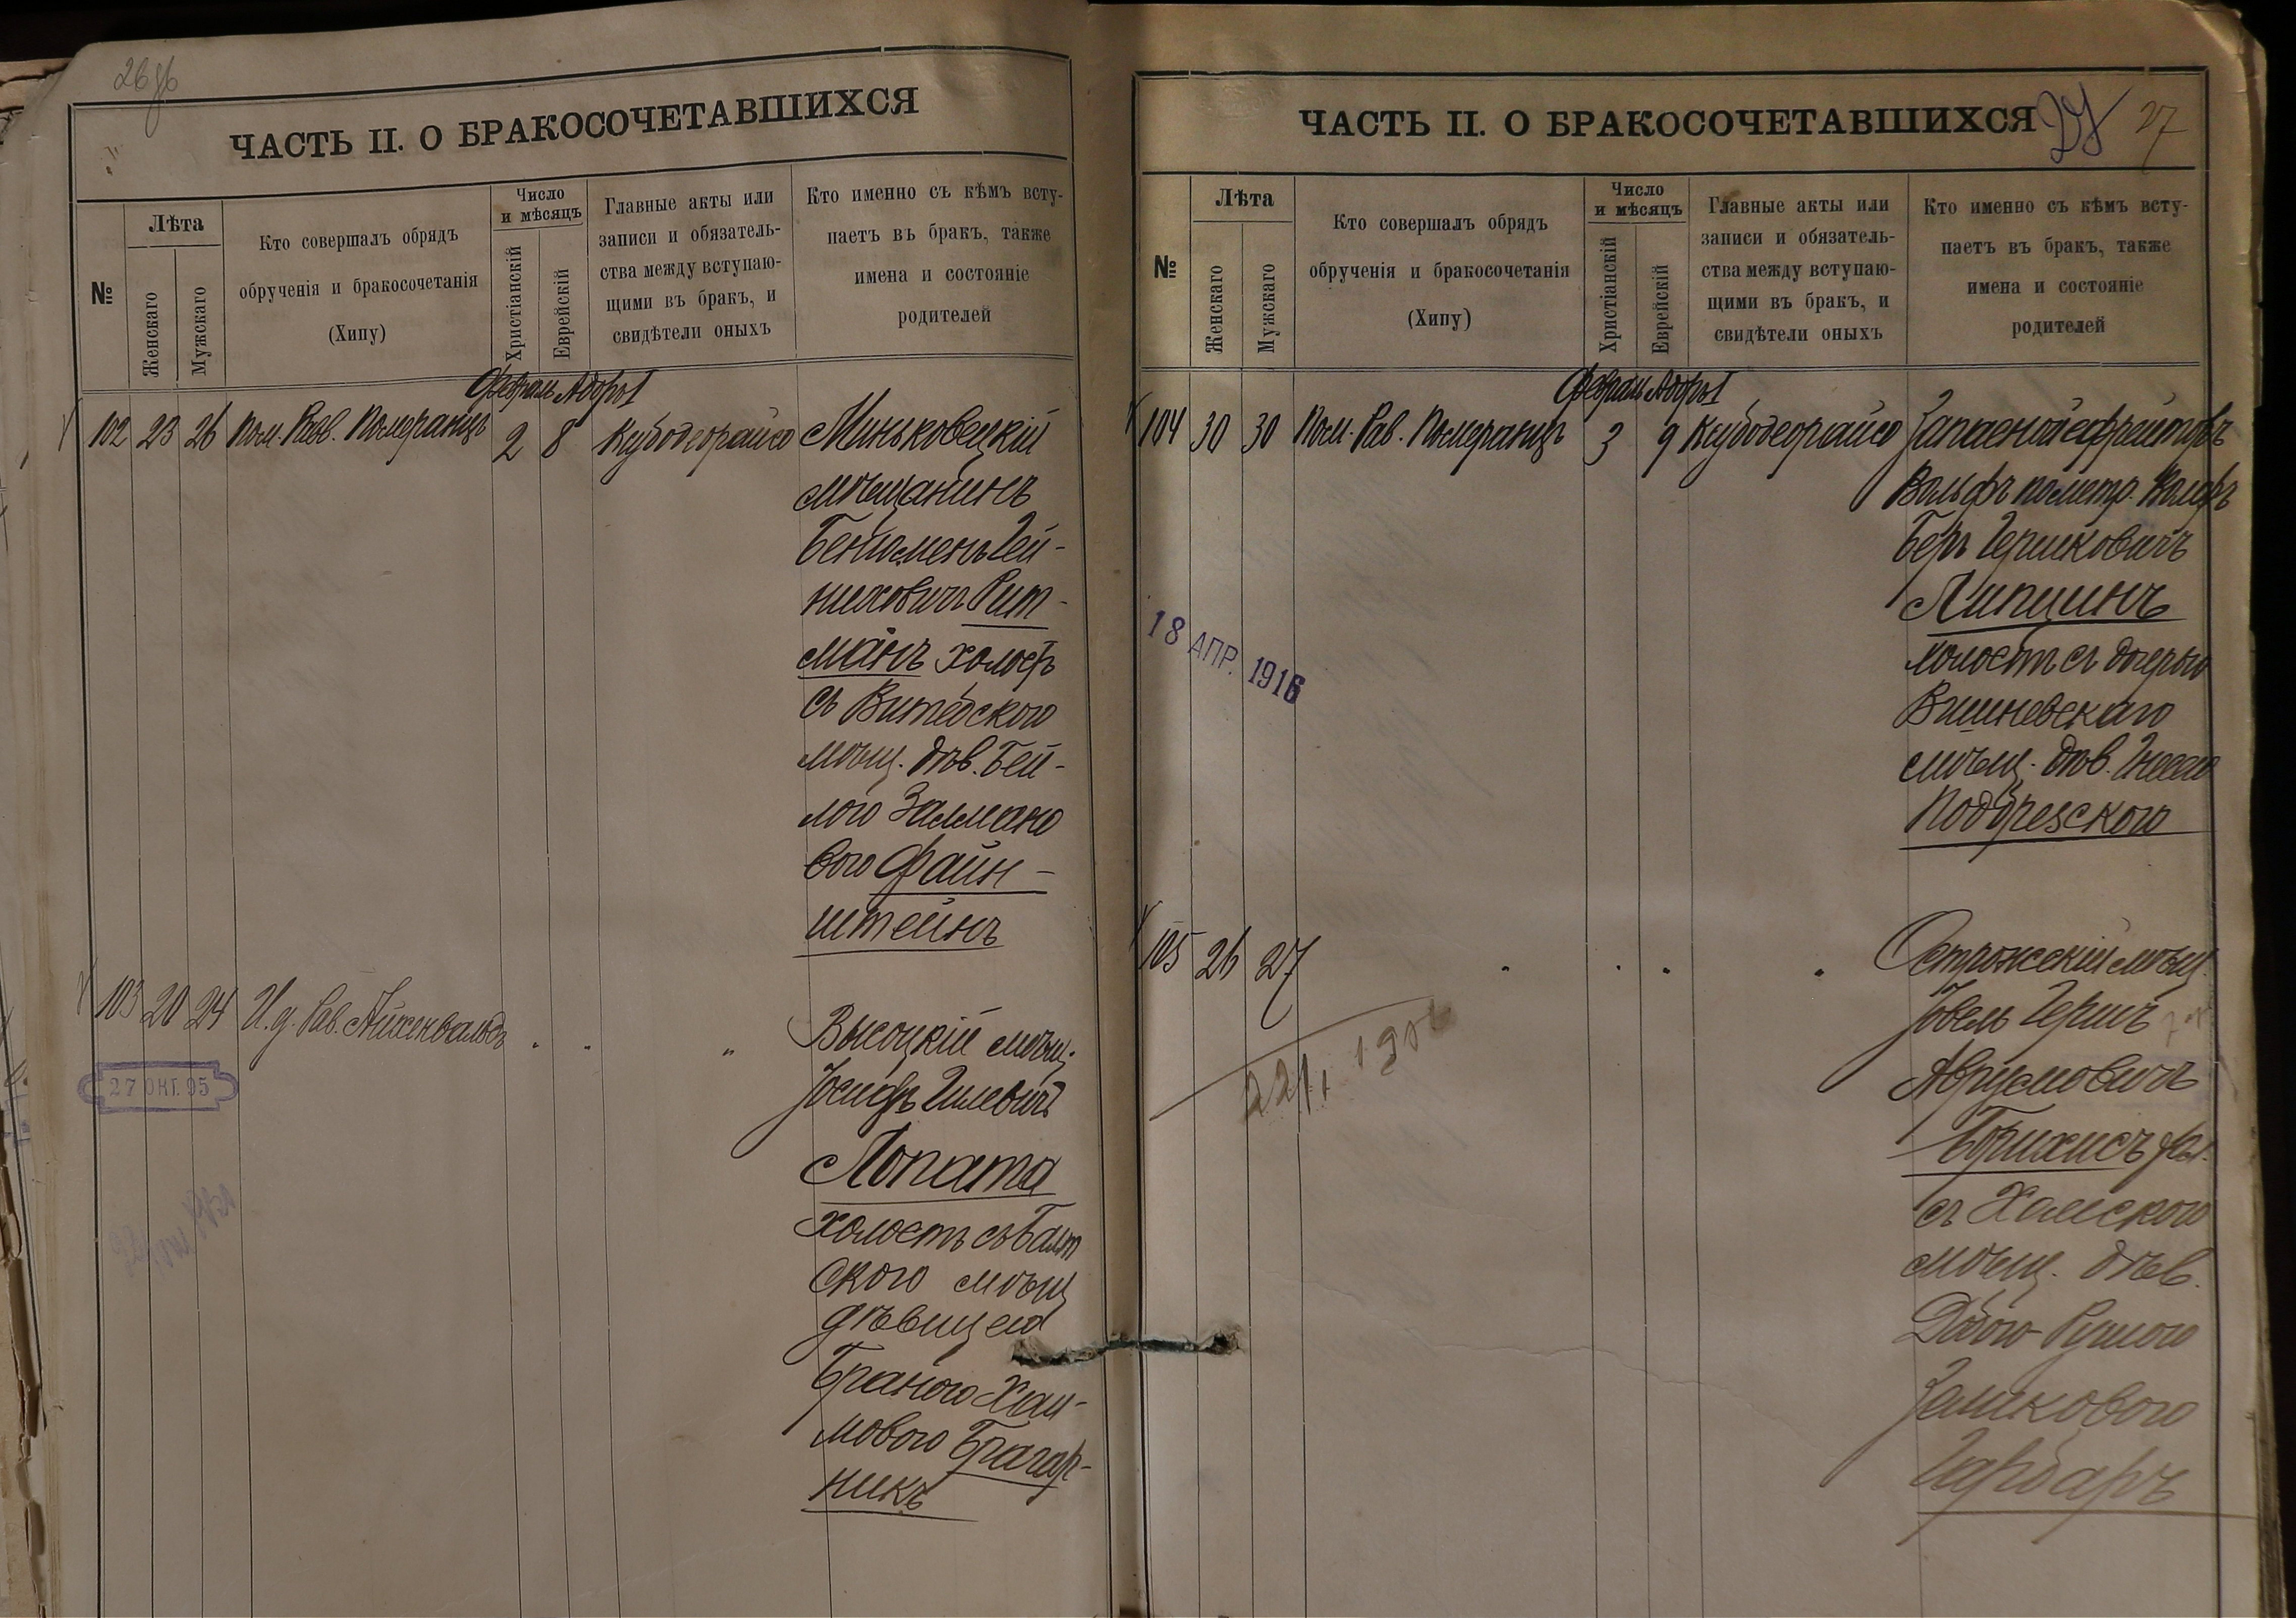 26об
ЧАСТЬ II. О БРАКОСОЧЕТАВШИХСЯ
№
Лѣта
Женскаго
Мужскаго
Кто совершалъ обрядъ
обрученія и бракосочетанія
(Хипу)
Число
и мѣсяцъ
Христіанскій
Еврейскій
Главные акты или
записи и обязатель-
ства между вступаю-
щими въ бракъ, и
свидѣтели оныхъ
Кто именно съ кѣмъ всту-
паетъ въ бракъ, также
имена и состояніе
родителей
Февраль Адоръ I
102 23 26 Пом. Рав. Померанцъ 2 8 Ксубодеорайсо Миньковецкій
мѣщанинъ
Беніоменъ Гей-
ниховичъ Рит-
манъ холостъ
съ Витебского
мѣщ. дѣв. Бей-
лою Залмано
вою Файн-
штейнъ
103 20 24 И. д. Рав. Айхенвальдъ . . " Высоцкій мѣщ.
Іосифъ Гилевичъ
Лопата
холостъ съ Балт
ского мѣщ
дѣвицею
Браною Хаи-
мовою Брагар-
никъ
27 ОКТ. 95
ЧАСТЬ II. О БРАКОСОЧЕТАВШИХСЯ
27 27
№
Лѣта
Женскаго
Мужскаго
Кто совершалъ обрядъ
обрученія и бракосочетанія
(Хипу)
Число
и мѣсяцъ
Христіанскій
Еврейскій
Главные акты или
записи и обязатель-
ства между вступаю-
щими въ бракъ, и
свидѣтели оныхъ
Кто именно съ кѣмъ всту-
паетъ въ бракъ, также
имена и состояніе
родителей
Февраль Адоръ I
104 30 30 Пом. Рав. Померанцъ 3 9 Ксубодеорайсо Запасной ефрейторъ
Вольфъ по метр. Вольфъ
Беръ Гершковичъ
Липшинъ
холостъ съ дочерью
Вишневскаго
мѣщ. дѣв. Гнесею
Подбрезского
18 АПР. 1916
105 26 27 . . . . Острожскій мѣщ.
Іовель Гершъ
Аврумовичъ
Борихисъ хол.
съ Хамского
мѣщ. дѣв.
Добою-Рухлою
Замковою
Гарбаръ